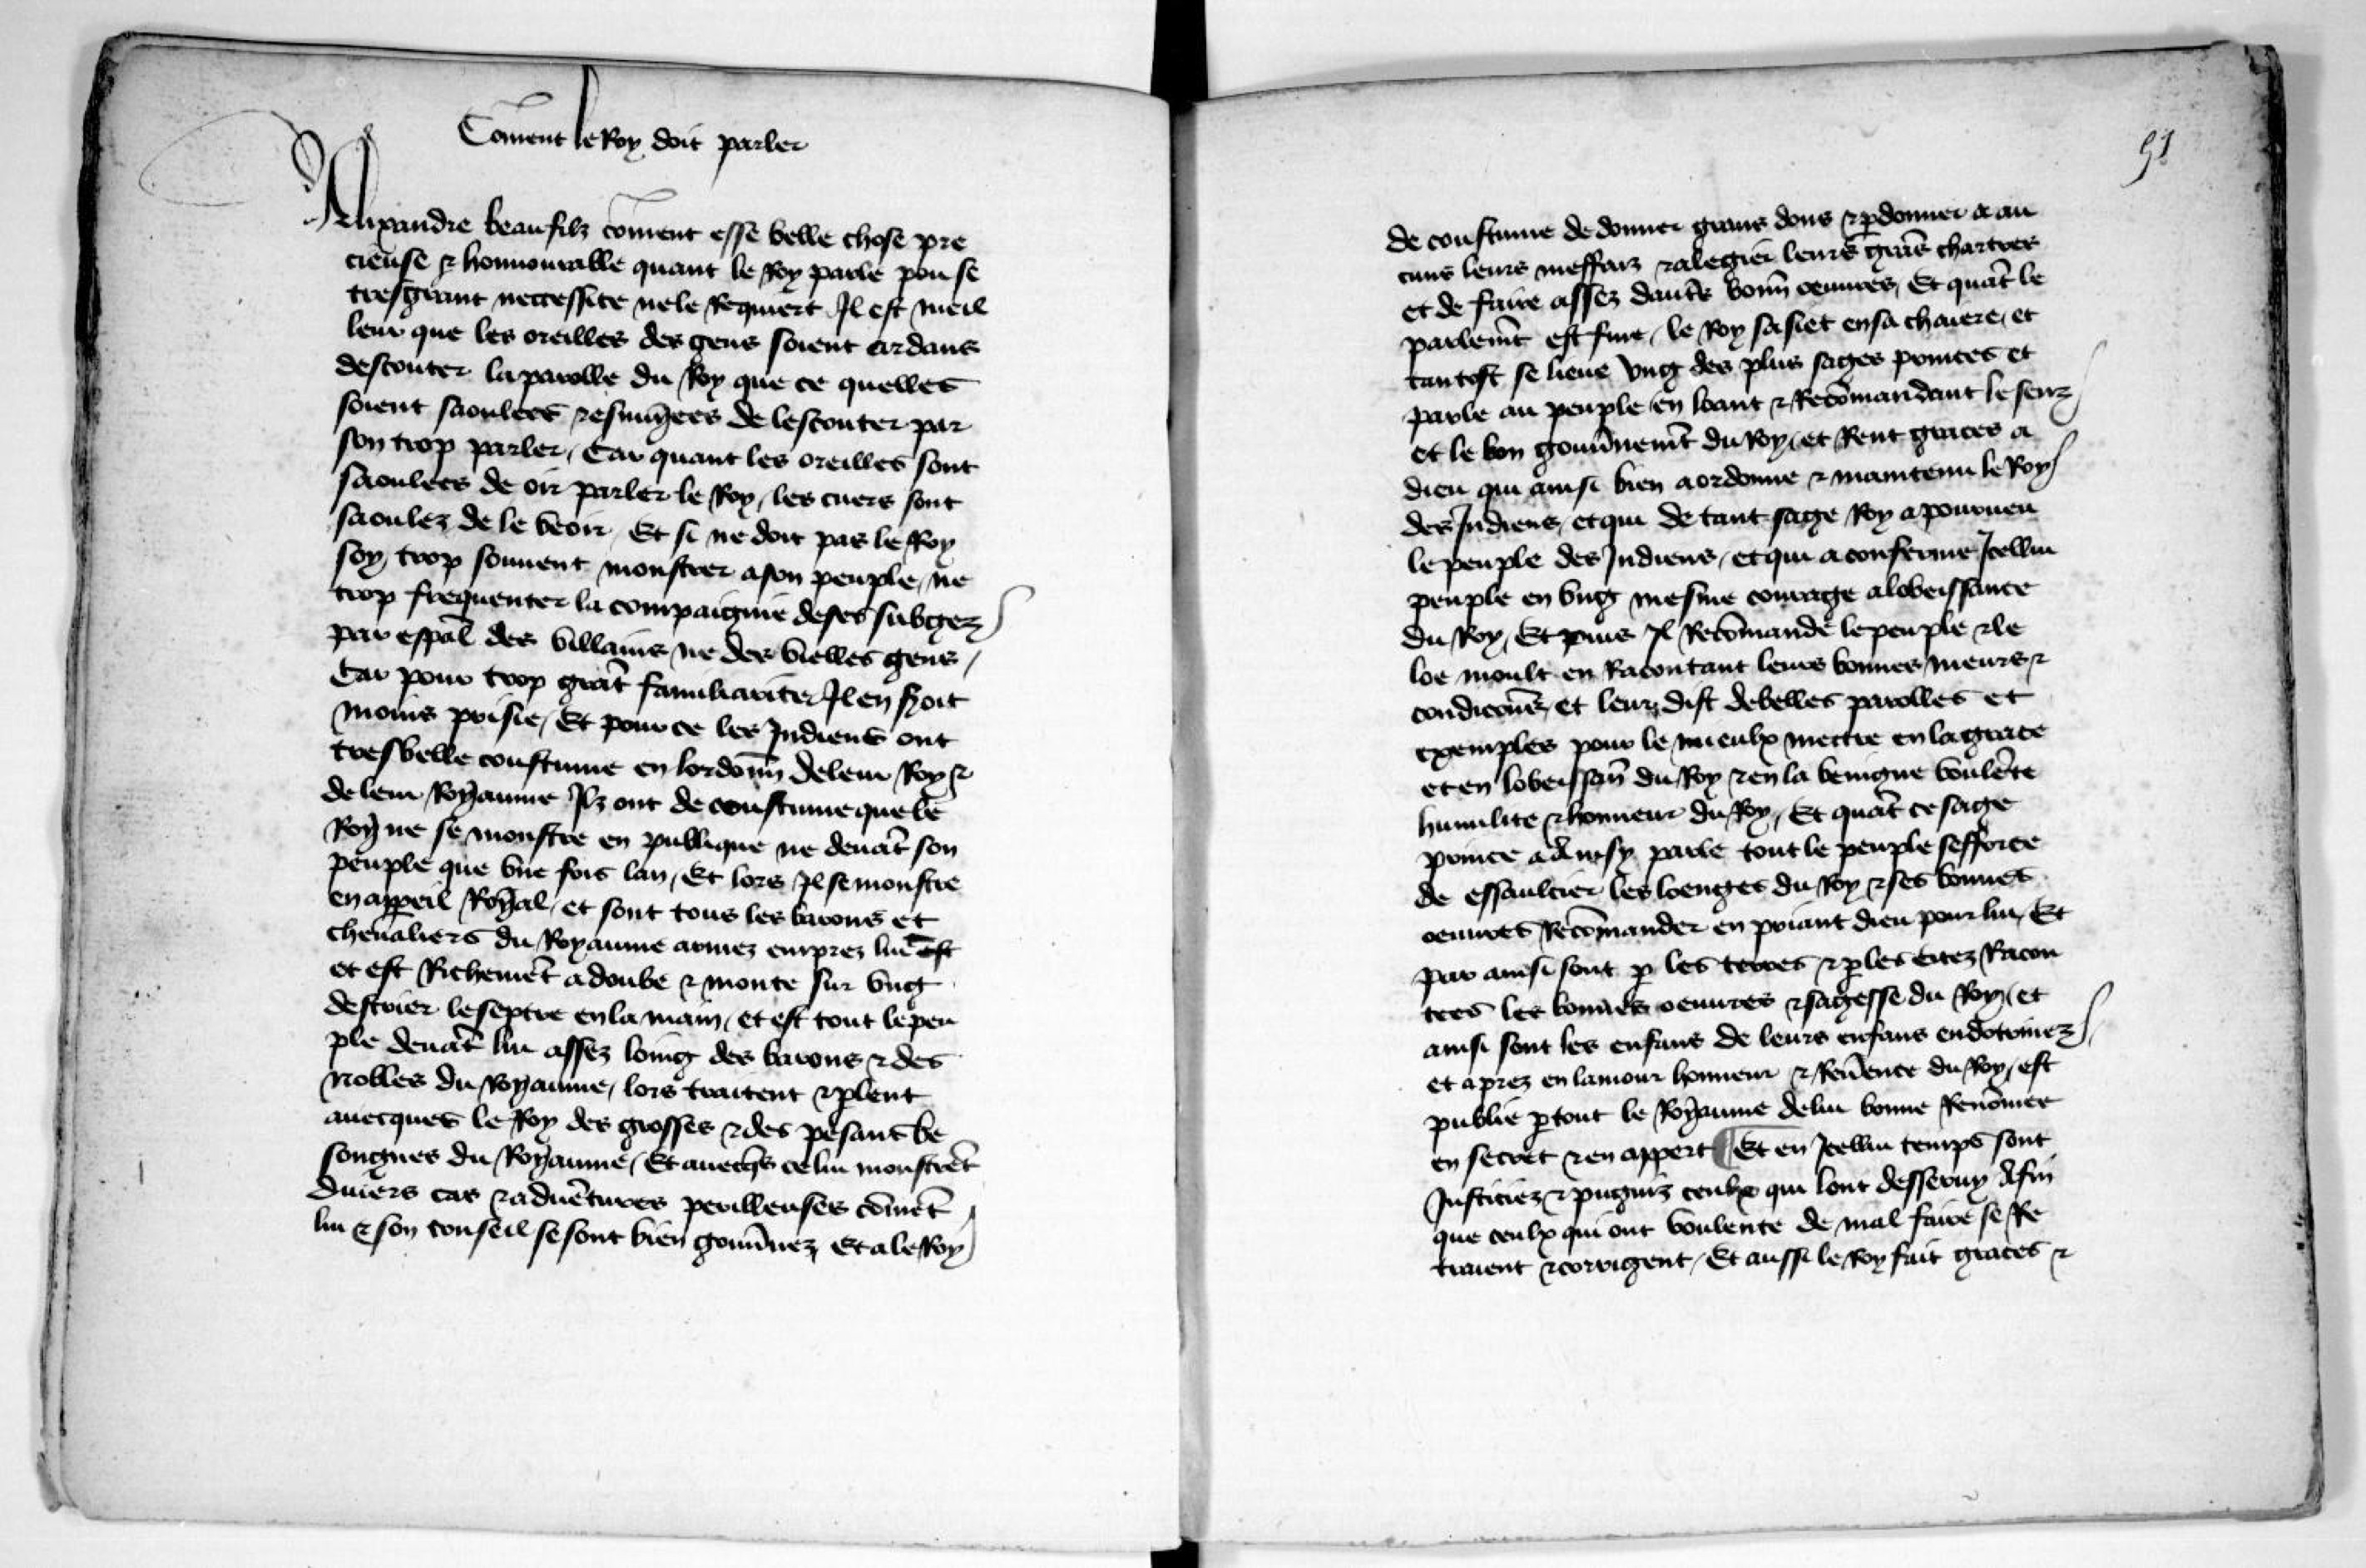 Coment le Roy doit parler
Alixandre beau filz coment esse belle chose pre
cieuse & honnourable quant le Roy parle pou se
tresgrant neccessite ne le Requiert Il est meil
leur que les oreilles des gens soient ardans
descouter la parolle du Roy que ce quelles
soient saoulees & de lescouter par
son trop parler / Car quant les oreilles sont
saoulees de oir parler le Roy / les cuers sont
saoulez de le veoir / Et si ne doit pas le Roy
soy trop souuent monstrer a son peuple / ne
trop frequenter la compaignie de ses subgez
par espāl des villains ne des vielles gens /
Car pour trop grāt familiarite Il en 
moins prisie / Et pour ce les Indiens ont
tresbelle coustume en lordonn̄ de leur Roy &
de leur Royaume Ilz ont de coustume que le
Roy ne se monstre en publique ne deuāt son
peuple que vne fois lan / Et lors Il se monstre
en appeil Royal / et sont tous les barons et
cheualiers du Royaume armez emprez lui est
et est Richemēt adoube & monte sur vng
destrier le septre en la main / et est tout le peu
ple deuāt lui assez loing des barons & des
Nobles du Royaume / lors traitent & plent
auecques le Roy des grosses & des pesans be
songnes du Royaume / Et auecq̄s ce lui monstrēt
diuers cas & aduētures perilleuses cōmēt
lui & son conseil se sont bien gouūnez / Et a le Roy
51
de coustume de donner grans dons & pdonner a au
cuns leurs meffaiz & alegier leurs grās chartres
et de faire assez dautr̄s bonn̄ oeuures / Et quāt le
parlemt̄ est fine / le Roy sasiet en sa chaiere / et
tantost se lieue vng des plus sages princes et
parle au peuple en loant & Recōmandant le senz
et le bon gouūnemt̄ du Roy / et Rent graces a
dieu qui ainsi bien a ordonne & maintenu le Roy
des Indiens / et qui de tant sage Roy a pourueu
le peuple des Indiens / et qui a conferme Icellui
peuple en vng mesme courage a lobeissance
du Roy / Et puis Il Recōmande le peuple & le
loe moult en Racontant leurs bonnes meurs &
condicōns / et leur dist de belles parolles et
exemples pour le mieulx mettre en la grace
et en lobeissan̄ du Roy & en la benigne voulēte
humilite & honneur du Roy / Et quāt ce sage
prince a parle tout le peuple sefforce
de essaulcier les loenges du Roy & ses bonnes
oeuures Recōmander en priant dieu pour lui / Et
par ainsi sont p les terres & p les citez Racon
tees les bonnes oeuures & sagesse du Roy / et
ainsi sont les enfans de leurs enfans endotrinez
et aprez en lamour honneur & Reūence du Roy / est
publie ptout le Royaume de lui bonne Renōmee
en secret & en appert Et en Icellui temps sont
Justiciez & pugniz ceulx qui lont desseruy Afin
que ceulx qui ont voulente de mal faire se Re
traient & corrigent / Et aussi le Roy fait graces &